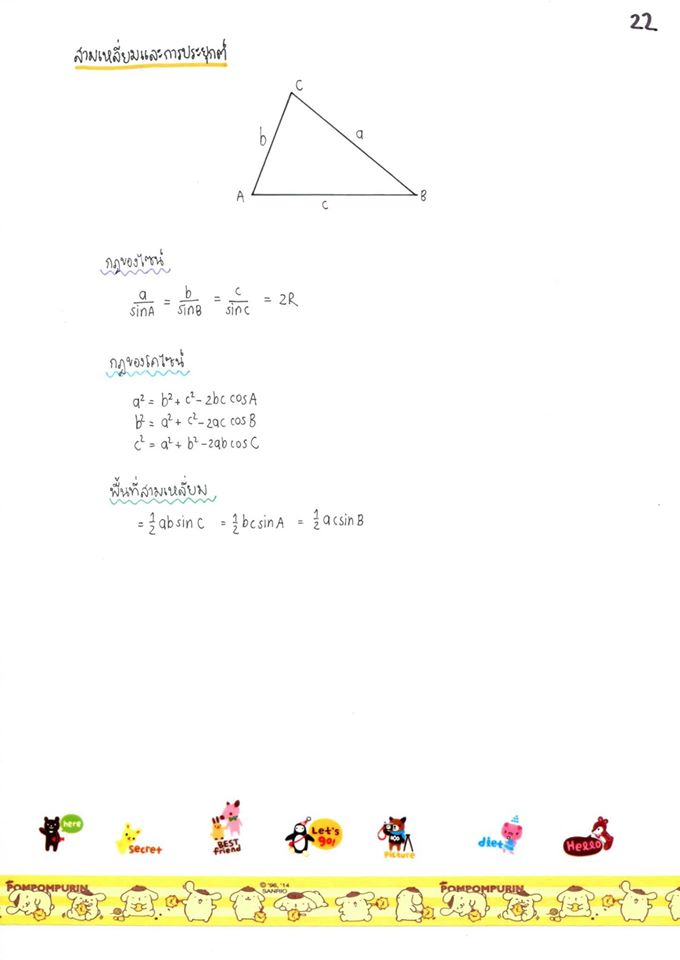 22
สามเหลี่ยมและการประยุกต์
C
b
a
A
B
c
กฎของไซน์
a/sinA = b/sinB = c/sinC = 2R
กฎของโคไซน์
a² = b² + c² - 2bc cosA
b² = a² + c² - 2ac cosB
c² = a² + b² - 2ab cos C
พื้นที่สามเหลี่ยม
= ½ ab sin C = ½ bc sin A = ½ ac sin B
here
Secret
BEST friend
Let's go!
Picture
diet
Hello
POMPOMPURIN
© '96, '14 SANRIO
POMPOMPURIN